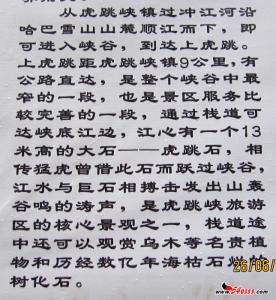 从虎跳峡镇过冲江河沿
哈巴雪山山麓顺江而下，即
可进入峡谷，到达上虎跳。
上虎跳距虎跳峡镇9公里，有
公路直达，是整个峡谷中最
窄的一段，也是景区服务比
较完善的一段，通过栈道可
达峡底江边，江心有一个13
米高的大石——虎跳石，相
传猛虎曾借此石而跃过峡谷，
江水与巨石相搏击发出山轰
谷鸣的涛声，是虎跳峡旅游
区的核心景观之一，栈道途
中还可以观赏乌木等名贵植
物和历经数亿年海枯石
树化石。